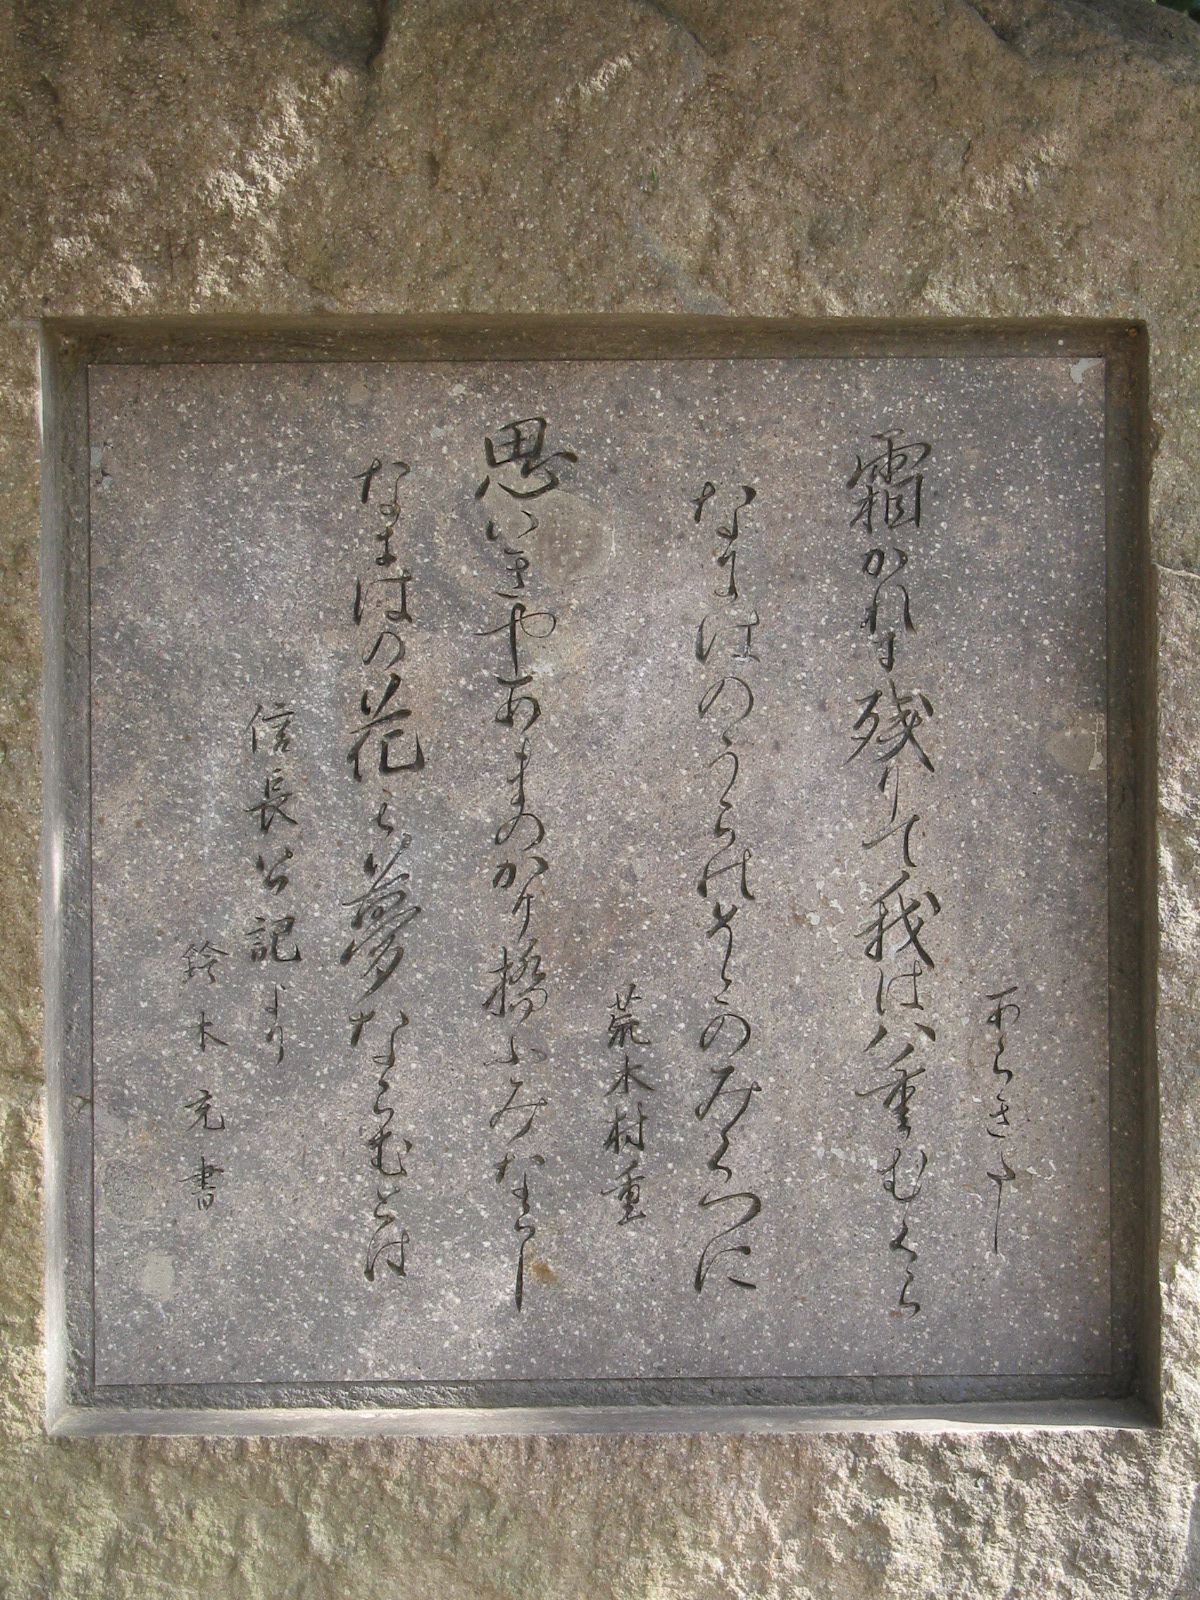 あらきたし
霜かれに残りて我は八重むくら
なにはのうらのそこのみくつに
荒木村重
思いきやあまのかけ橋ふみならし
なにはの花も夢ならむとは
信長公記より
鈴木充書